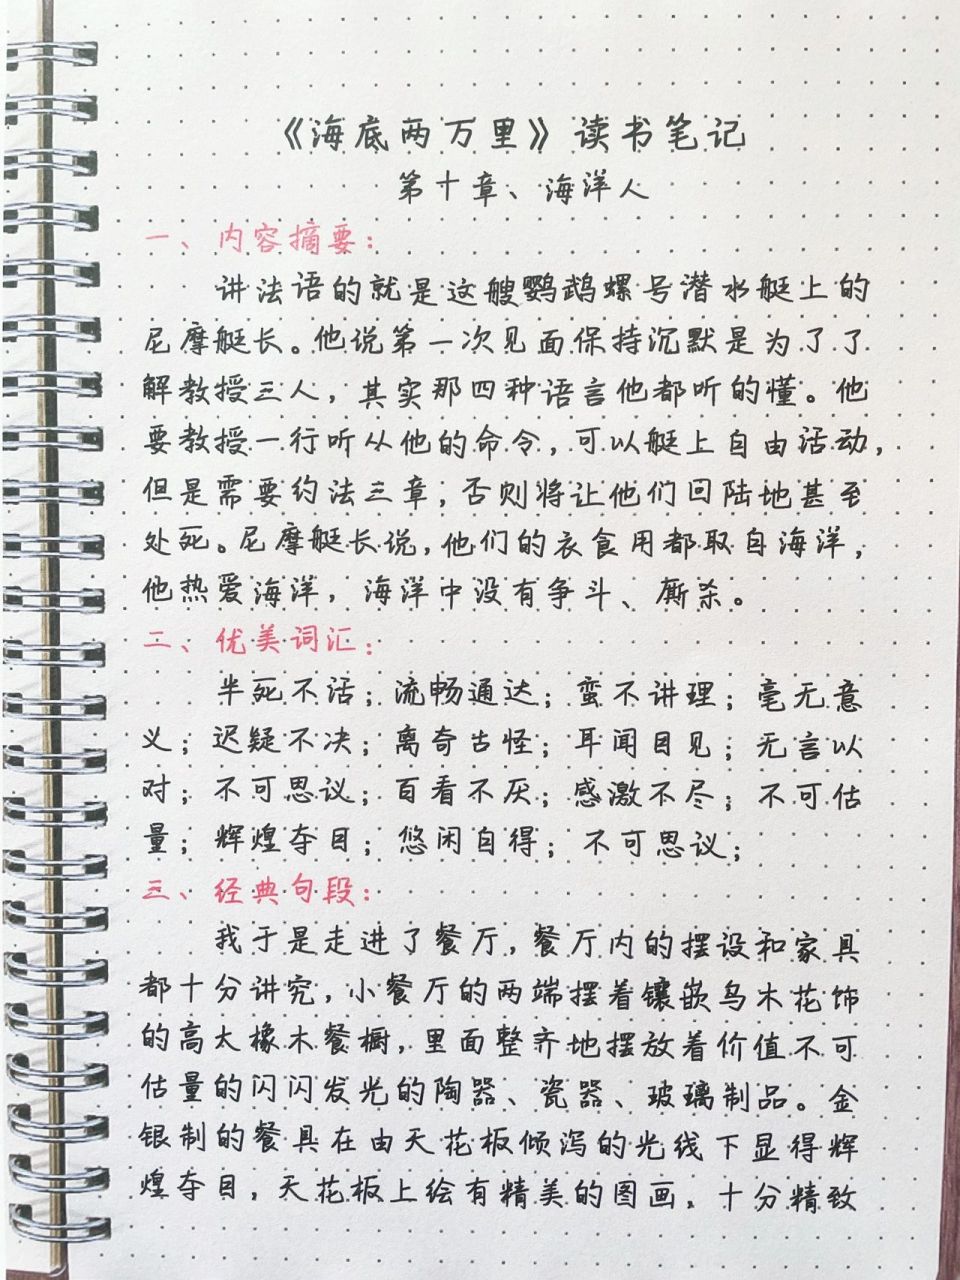 《海底两万里》读书笔记
第十章、海洋人
一、内容摘要:
讲法语的就是这艘鹦鹉螺号潜水艇上的
尼摩艇长。他说第一次见面保持沉默是为了了
解教授三人，其实那四种语言他都听的懂。他
要教授一行听从他的命令，可以艇上自由活动，
但是需要约法三章，否则将让他们回陆地甚至
处死。尼摩艇长说，他们的衣食用都取自海洋，
他热爱海洋，海洋中没有争斗、厮杀。
二、优美词汇:
半死不活；流畅通达；蛮不讲理；毫无意
义；迟疑不决；离奇古怪；耳闻目见；无言以
对；不可思议；百看不厌；感激不尽；不可估
量；辉煌夺目；悠闲自得；不可思议；
三、经典句段:
我于是走进了餐厅，餐厅内的摆设和家具
都十分讲究，小餐厅的两端摆着镶嵌乌木花饰
的高大橡木餐橱，里面整齐地摆放着价值不可
估量的闪闪发光的陶器、瓷器、玻璃制品。金
银制的餐具在由天花板倾泻的光线下显得辉
煌夺目，天花板上绘有精美的图画，十分精致